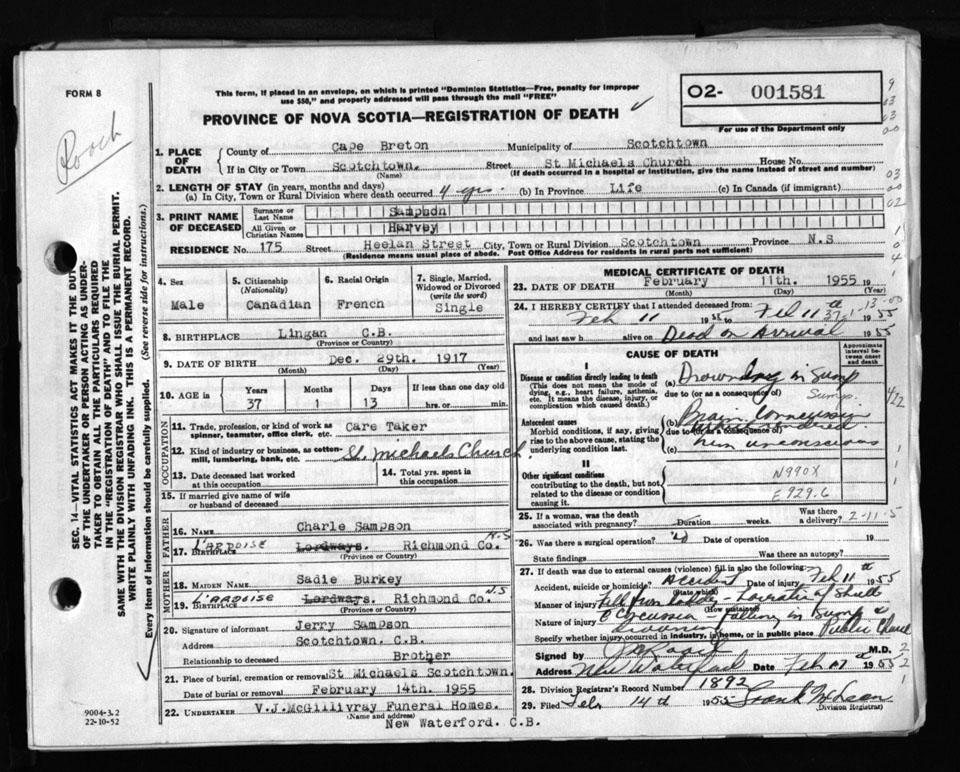 FORM 8
This form, if placed in an envelope, on which is printed "Dominion Statistics—Free, penalty for improper
use $50," and properly addressed will pass through the mail "FREE"
PROVINCE OF NOVA SCOTIA—REGISTRATION OF DEATH
02- 001581
For use of the Department only
Roach
SEC. 14—VITAL STATISTICS ACT MAKES IT THE DUTY
OF THE UNDERTAKER OR PERSON ACTING AS UNDER-
TAKER TO OBTAIN ALL THE PARTICULARS REQUIRED
IN THE "REGISTRATION OF DEATH" AND TO FILE THE
SAME WITH THE DIVISION REGISTRAR WHO SHALL ISSUE THE BURIAL PERMIT.
WRITE PLAINLY WITH UNFADING INK. THIS IS A PERMANENT RECORD.
Every item of information should be carefully supplied. (See reverse side for instructions.)
1. PLACE OF DEATH
County of Cape Breton Municipality of Scotchtown
If in City or Town Scotchtown. Street St Michaels Church House No.
(Name) (If death occurred in a hospital or institution, give the name instead of street and number)
2. LENGTH OF STAY (in years, months and days)
(a) In City, Town or Rural Division where death occurred 4 yrs. (b) In Province Life (c) In Canada (if immigrant)
3. PRINT NAME OF DECEASED
Surname or Last Name Sampson
All Given or Christian Names Harvey
RESIDENCE No. 175 Street Heelan Street City, Town or Rural Division Scotchtown Province N.S
(Residence means usual place of abode. Post Office Address for residents in rural parts not sufficient)
4. Sex Male
5. Citizenship (Nationality) Canadian
6. Racial Origin French
7. Single, Married, Widowed or Divorced (write the word) Single
8. BIRTHPLACE Lingan C.B.
(Province or Country)
9. DATE OF BIRTH Dec. 29th. 1917
(Month) (Day) (Year)
10. AGE in Years Months Days If less than one day old
37 1 13 hrs. or min.
OCCUPATION
11. Trade, profession, or kind of work as spinner, teamster, office clerk, etc. Care Taker
12. Kind of industry or business, as cotton-mill, lumbering, bank, etc. St. Michaels Church
13. Date deceased last worked at this occupation
14. Total yrs. spent in this occupation
15. If married give name of wife or husband of deceased
FATHER
16. NAME Charle Sampson
17. BIRTHPLACE L'ARDOISE Lordways. Richmond Co. N.S
(Province or Country)
MOTHER
18. MAIDEN NAME Sadie Burkey
19. BIRTHPLACE L'ARDOISE Lordways. Richmond Co. N.S
(Province or Country)
20. Signature of informant Jerry Sampson
Address Scotchtown. C.B.
Relationship to deceased Brother
21. Place of burial, cremation or removal St Michaels Scotchtown.
Date of burial or removal February 14th. 1955
22. UNDERTAKER V.J.McGillivray Funeral Homes.
(Name and address)
New Waterford. C.B.
9004-3.2
22-10-52
MEDICAL CERTIFICATE OF DEATH
23. DATE OF DEATH February 11th. 1955 19
(Month) (Day) (Year)
24. I HEREBY CERTIFY that I attended deceased from
Feb 11 1955 to Feb 11th 1955
and last saw h alive on Dead on Arrival 1955
CAUSE OF DEATH
Approximate interval between onset and death
I
Disease or condition directly leading to death
(This does not mean the mode of dying, e.g., heart failure, asthenia, etc. It means the disease, injury, or complication which caused death.)
(a) Drowning in Sump
due to (or as a consequence of) Sump.
Antecedent causes
Morbid conditions, if any, giving rise to the above cause, stating the underlying condition last.
(b) Brain Concussion
due to (or as a consequence of) which rendered
(c) him unconscious
II
Other significant conditions
contributing to the death, but not related to the disease or condition causing it.
N990X
E929.6
25. If a woman, was the death associated with pregnancy? Duration weeks. Was there a delivery? 2-11-5
26. Was there a surgical operation? Date of operation 19
State findings Was there an autopsy?
27. If death was due to external causes (violence) fill in also the following:
Accident, suicide or homicide? Accident Date of injury Feb 11th 1955
(State which)
Manner of injury Fell from ladder
(How sustained)
Nature of injury
Specify whether injury occurred in industry, in home, or in public place Public Church
Signed by M.D.
Address New Waterford Date Feb 1955
28. Division Registrar's Record Number 1892
29. Filed Feb. 14th 1955 Frank McLean
(Division Registrar)